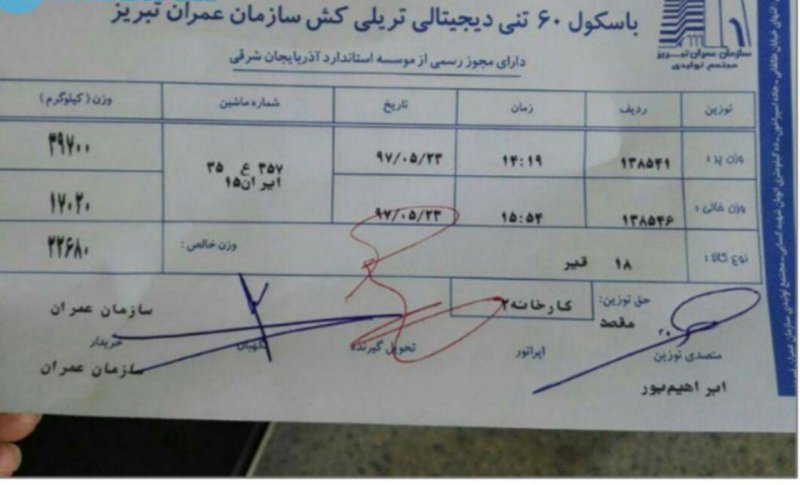 باسکول ۶۰ تنی دیجیتالی تریلی کش سازمان عمران تبریز
دارای مجوز رسمی از موسسه استاندارد آذربایجان شرقی
سازمان عمران تبریز
مجتمع تولیدی
توزین ردیف زمان تاریخ شماره ماشین وزن (کیلوگرم)
وزن پر: ۱۳۸۵۴۱ ۱۴:۱۹ ۹۷/۰۵/۲۳ ۳۵۷ ع ۳۵ ۳۹۷۰۰
ایران۱۵
وزن خالی: ۱۳۸۵۴۶ ۱۵:۵۴ ۹۷/۰۵/۲۳ ۱۷۰۲۰
نوع کالا: ۱۸ قیر وزن خالص: ۲۲۶۸۰
حق توزین: کارخانه۲ سازمان عمران
مقصد
متصدی توزین اپراتور تحویل گیرنده نگهبان خریدار
ابراهیم‌پور سازمان عمران